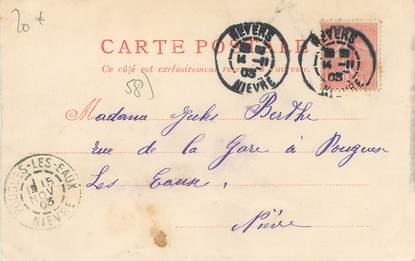 20 €
CARTE POSTALE
Ce côté est exclusivement réservé à l'adresse.
NEVERS
03
NIEVRE
NEVERS
03
NIEVRE
58)
Madame Jules Berthe
rue de la Gare à Pougues
Les Eaux,
Nièvre
POUGUES-LES-EAUX
15
NOV
03
NIEVRE